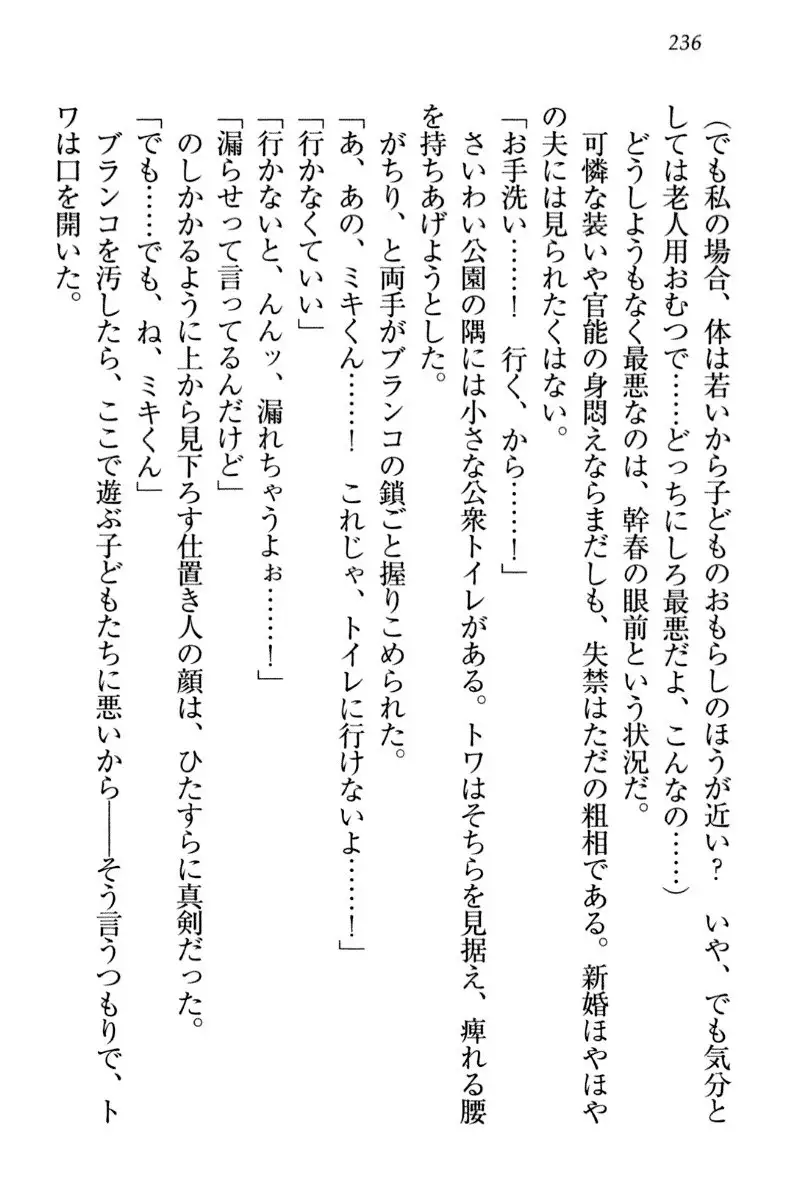 236
（でも私の場合、体は若いから子どものおもらしのほうが近い？　いや、でも気分と
しては老人用おむつで……どっちにしろ最悪だよ、こんなの……）
どうしようもなく最悪なのは、幹春の眼前という状況だ。
可憐な装いや官能の身悶えならまだしも、失禁はただの粗相である。新婚ほやほや
の夫には見られたくはない。
「お手洗い……！　行く、から……！」
さいわい公園の隅には小さな公衆トイレがある。トワはそちらを見据え、痺れる腰
を持ちあげようとした。
がちり、と両手がブランコの鎖ごと握りこめられた。
「あ、あの、ミキくん……！　これじゃ、トイレに行けないよ……！」
「行かなくていい」
「行かないと、んんッ、漏れちゃうよぉ……！」
「漏らせって言ってるんだけど」
のしかかるように上から見下ろす仕置き人の顔は、ひたすらに真剣だった。
「でも……でも、ね、ミキくん」
ブランコを汚したら、ここで遊ぶ子どもたちに悪いから――そう言うつもりで、ト
ワは口を開いた。